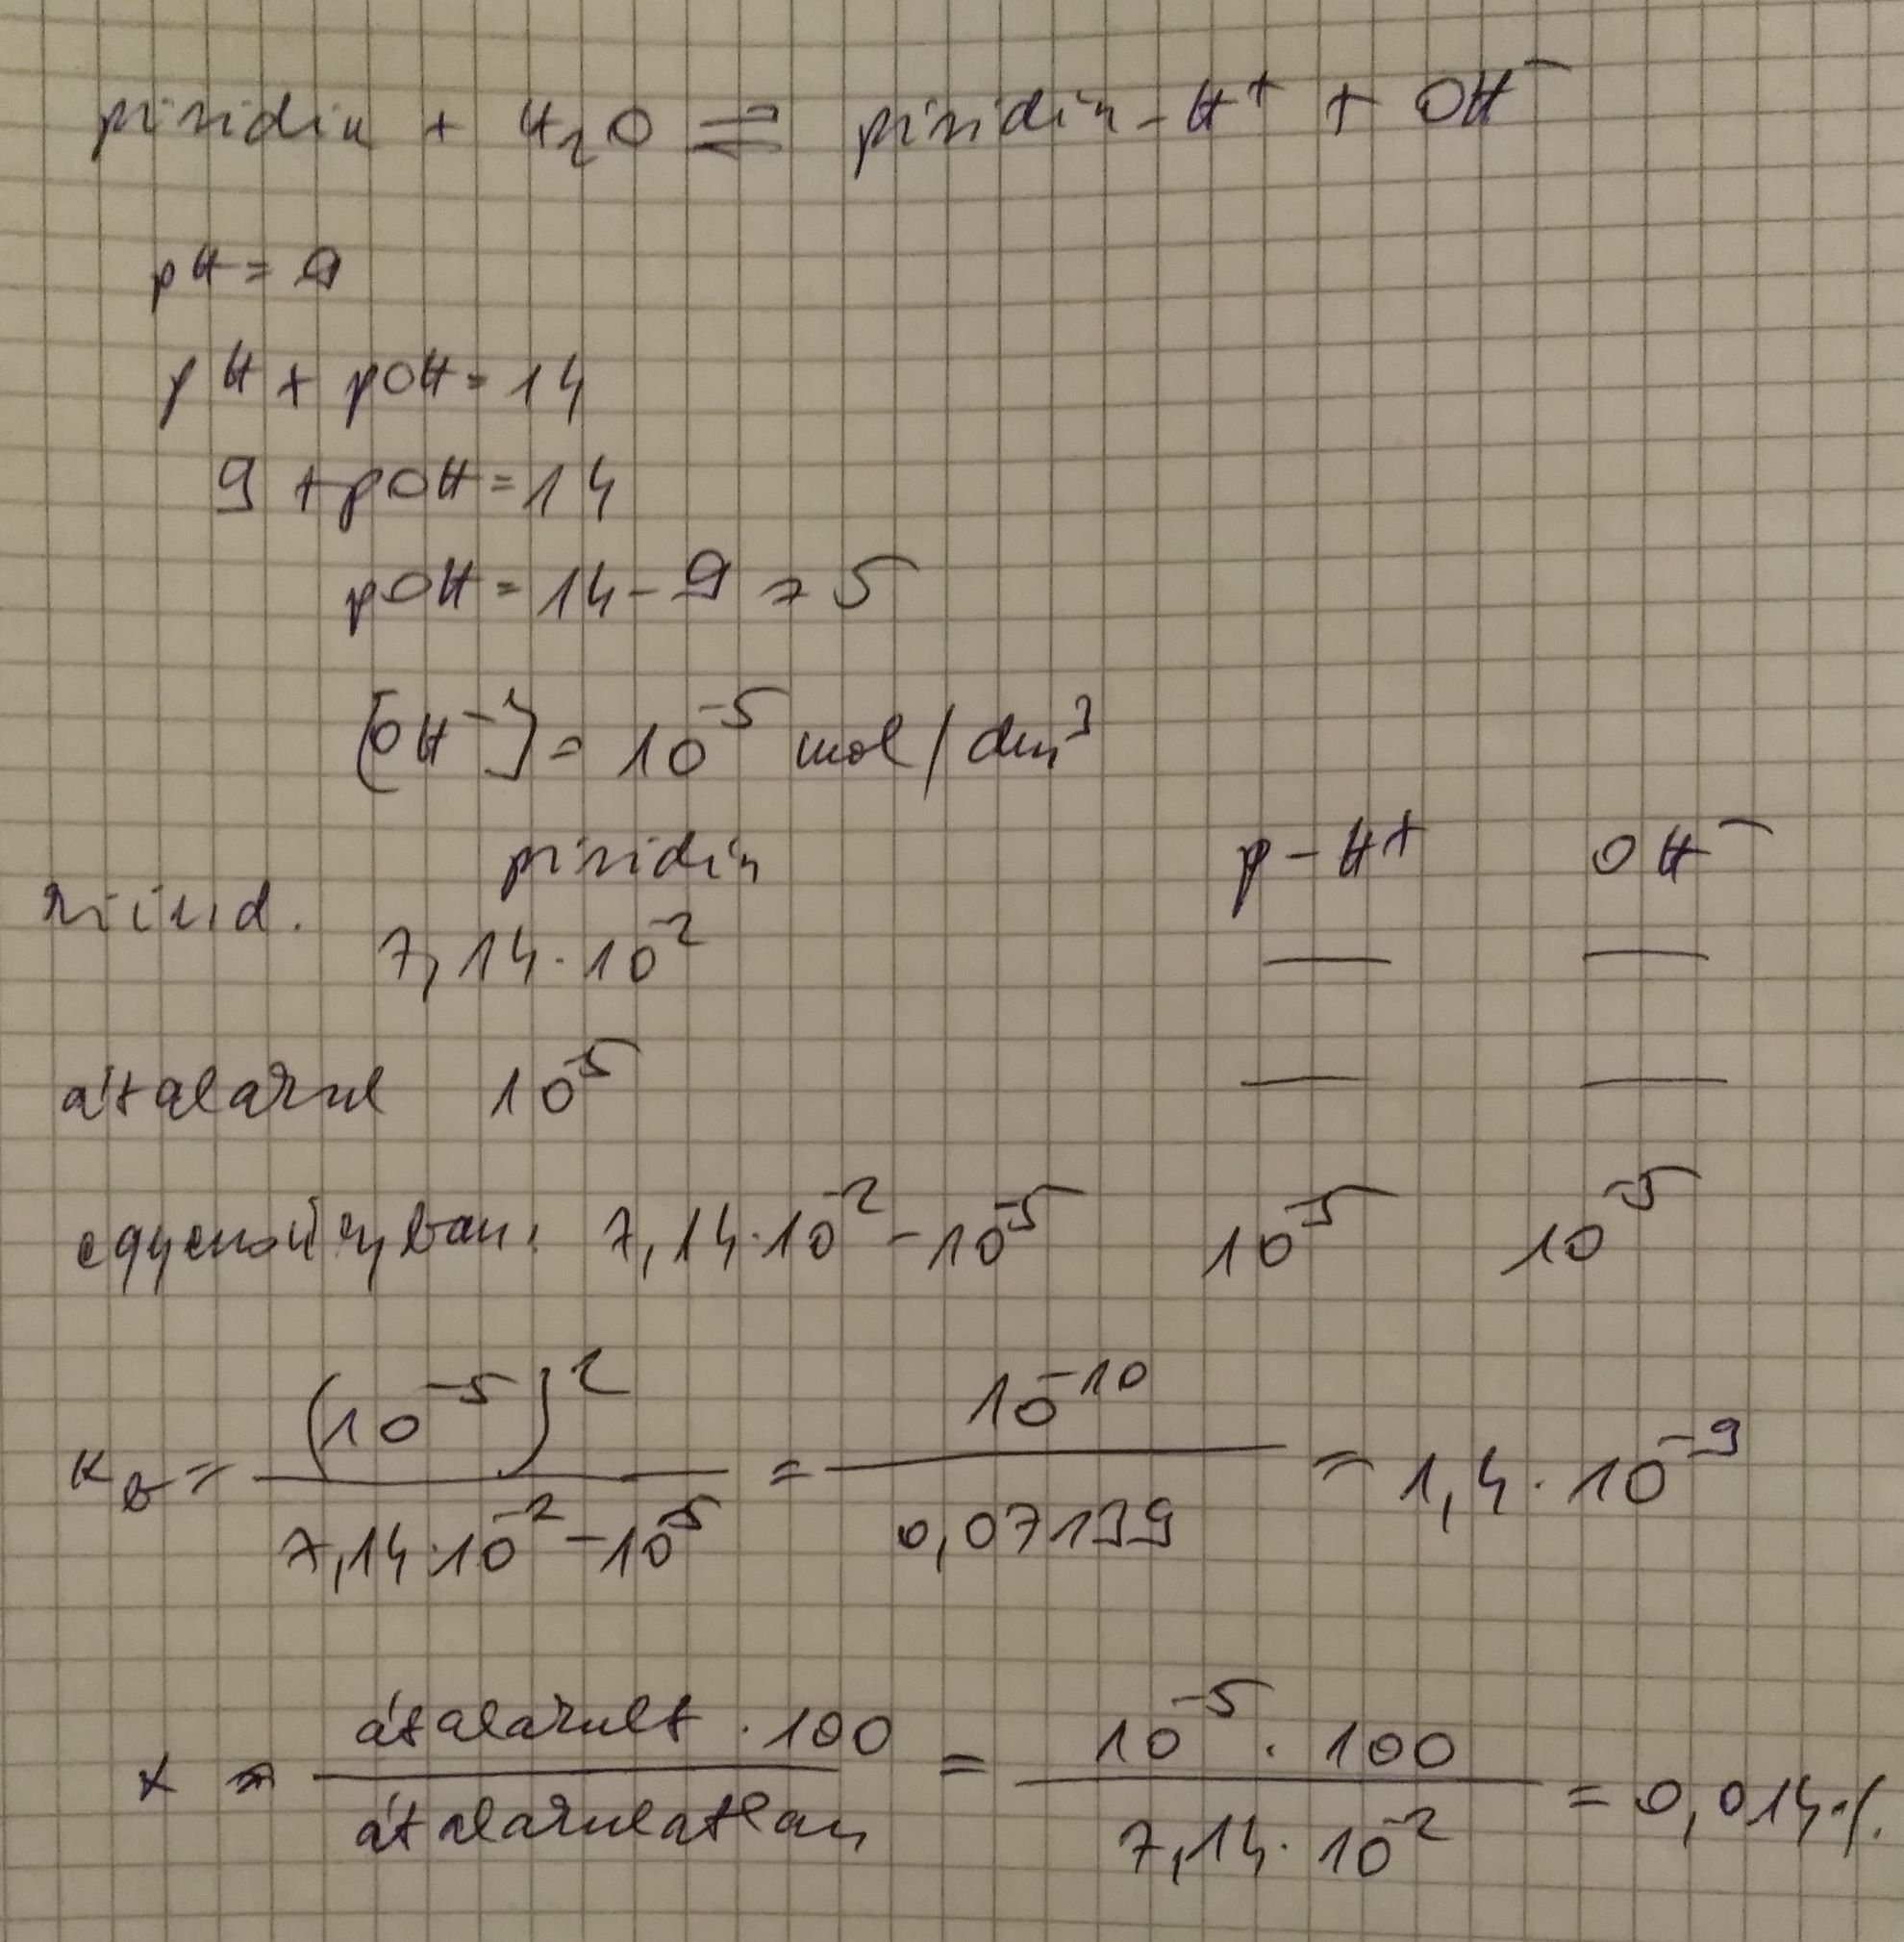 piridin + H₂O ⇌ piridin-H⁺ + OH⁻
pH = 9
pH + pOH = 14
9 + pOH = 14
pOH = 14 - 9 = 5
[OH⁻] = 10⁻⁵ mol/dm³
piridin p-H⁺ OH⁻
7,14·10⁻² — —
átalakul 10⁻⁵ — —
egyensúlyban: 7,14·10⁻² - 10⁻⁵ 10⁻⁵ 10⁻⁵
K_b = (10⁻⁵)² / (7,14·10⁻² - 10⁻⁵) = 10⁻¹⁰ / 0,07139 = 1,4·10⁻⁹
α = átalakult · 100 / átalakulatlan = 10⁻⁵ · 100 / 7,14·10⁻² = 0,014%